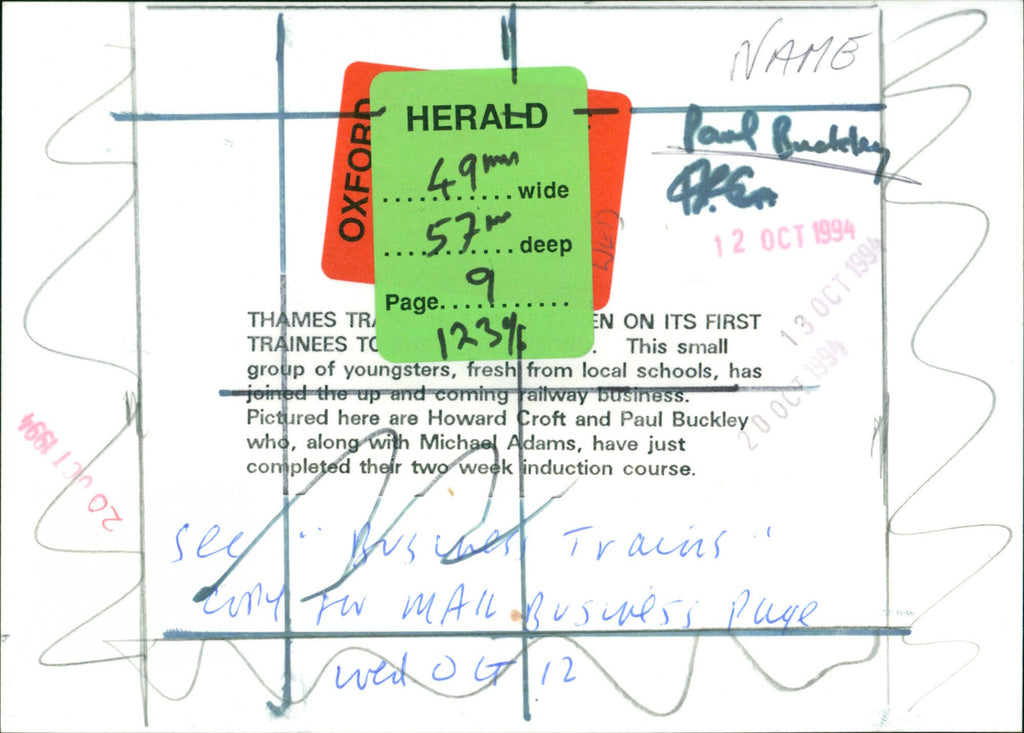 NAME
OXFORD
HERALD
49mm wide
57m deep
Page 9
123%
Paul Buckley
12 OCT 1994
13 OCT 1994
20 OCT 1994
20 OCT 1994
THAMES TRA EN ON ITS FIRST
TRAINEES TO . This small
group of youngsters, fresh from local schools, has
joined the up and coming railway business.
Pictured here are Howard Croft and Paul Buckley
who, along with Michael Adams, have just
completed their two week induction course.
See "Business Trains"
copy for MAIL Business Page
Wed OCT 12